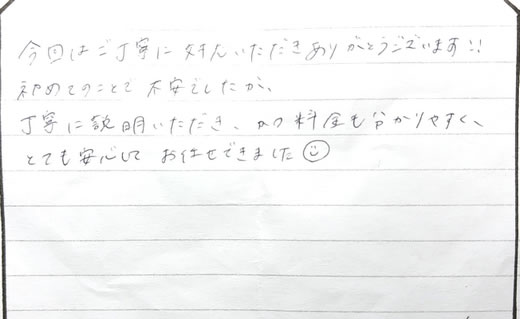 今回はご丁寧に対応いただきありがとうございます!!
初めてのことで不安でしたが、
丁寧に説明いただき、かつ料金も分かりやすく、
とても安心してお任せできました☺